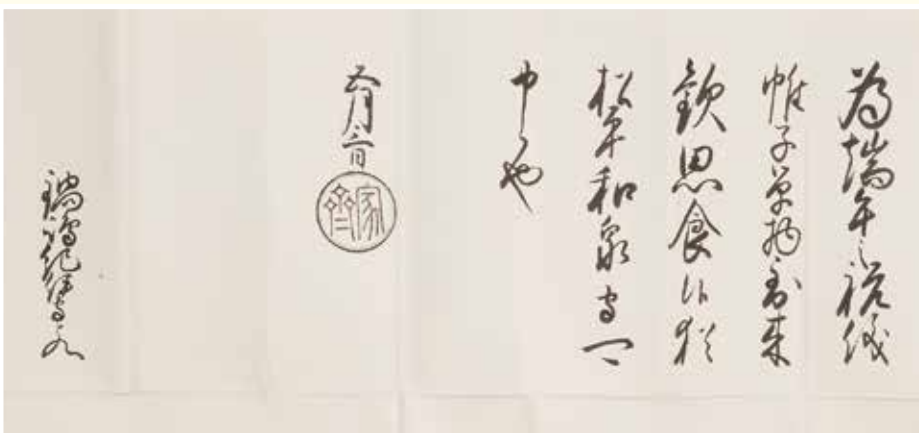 為端午之祝儀
帷子単物到来
歓思食候猶
松平和泉守可
申候也
五月三日
家齊
鍋嶋紀伊守とのへ